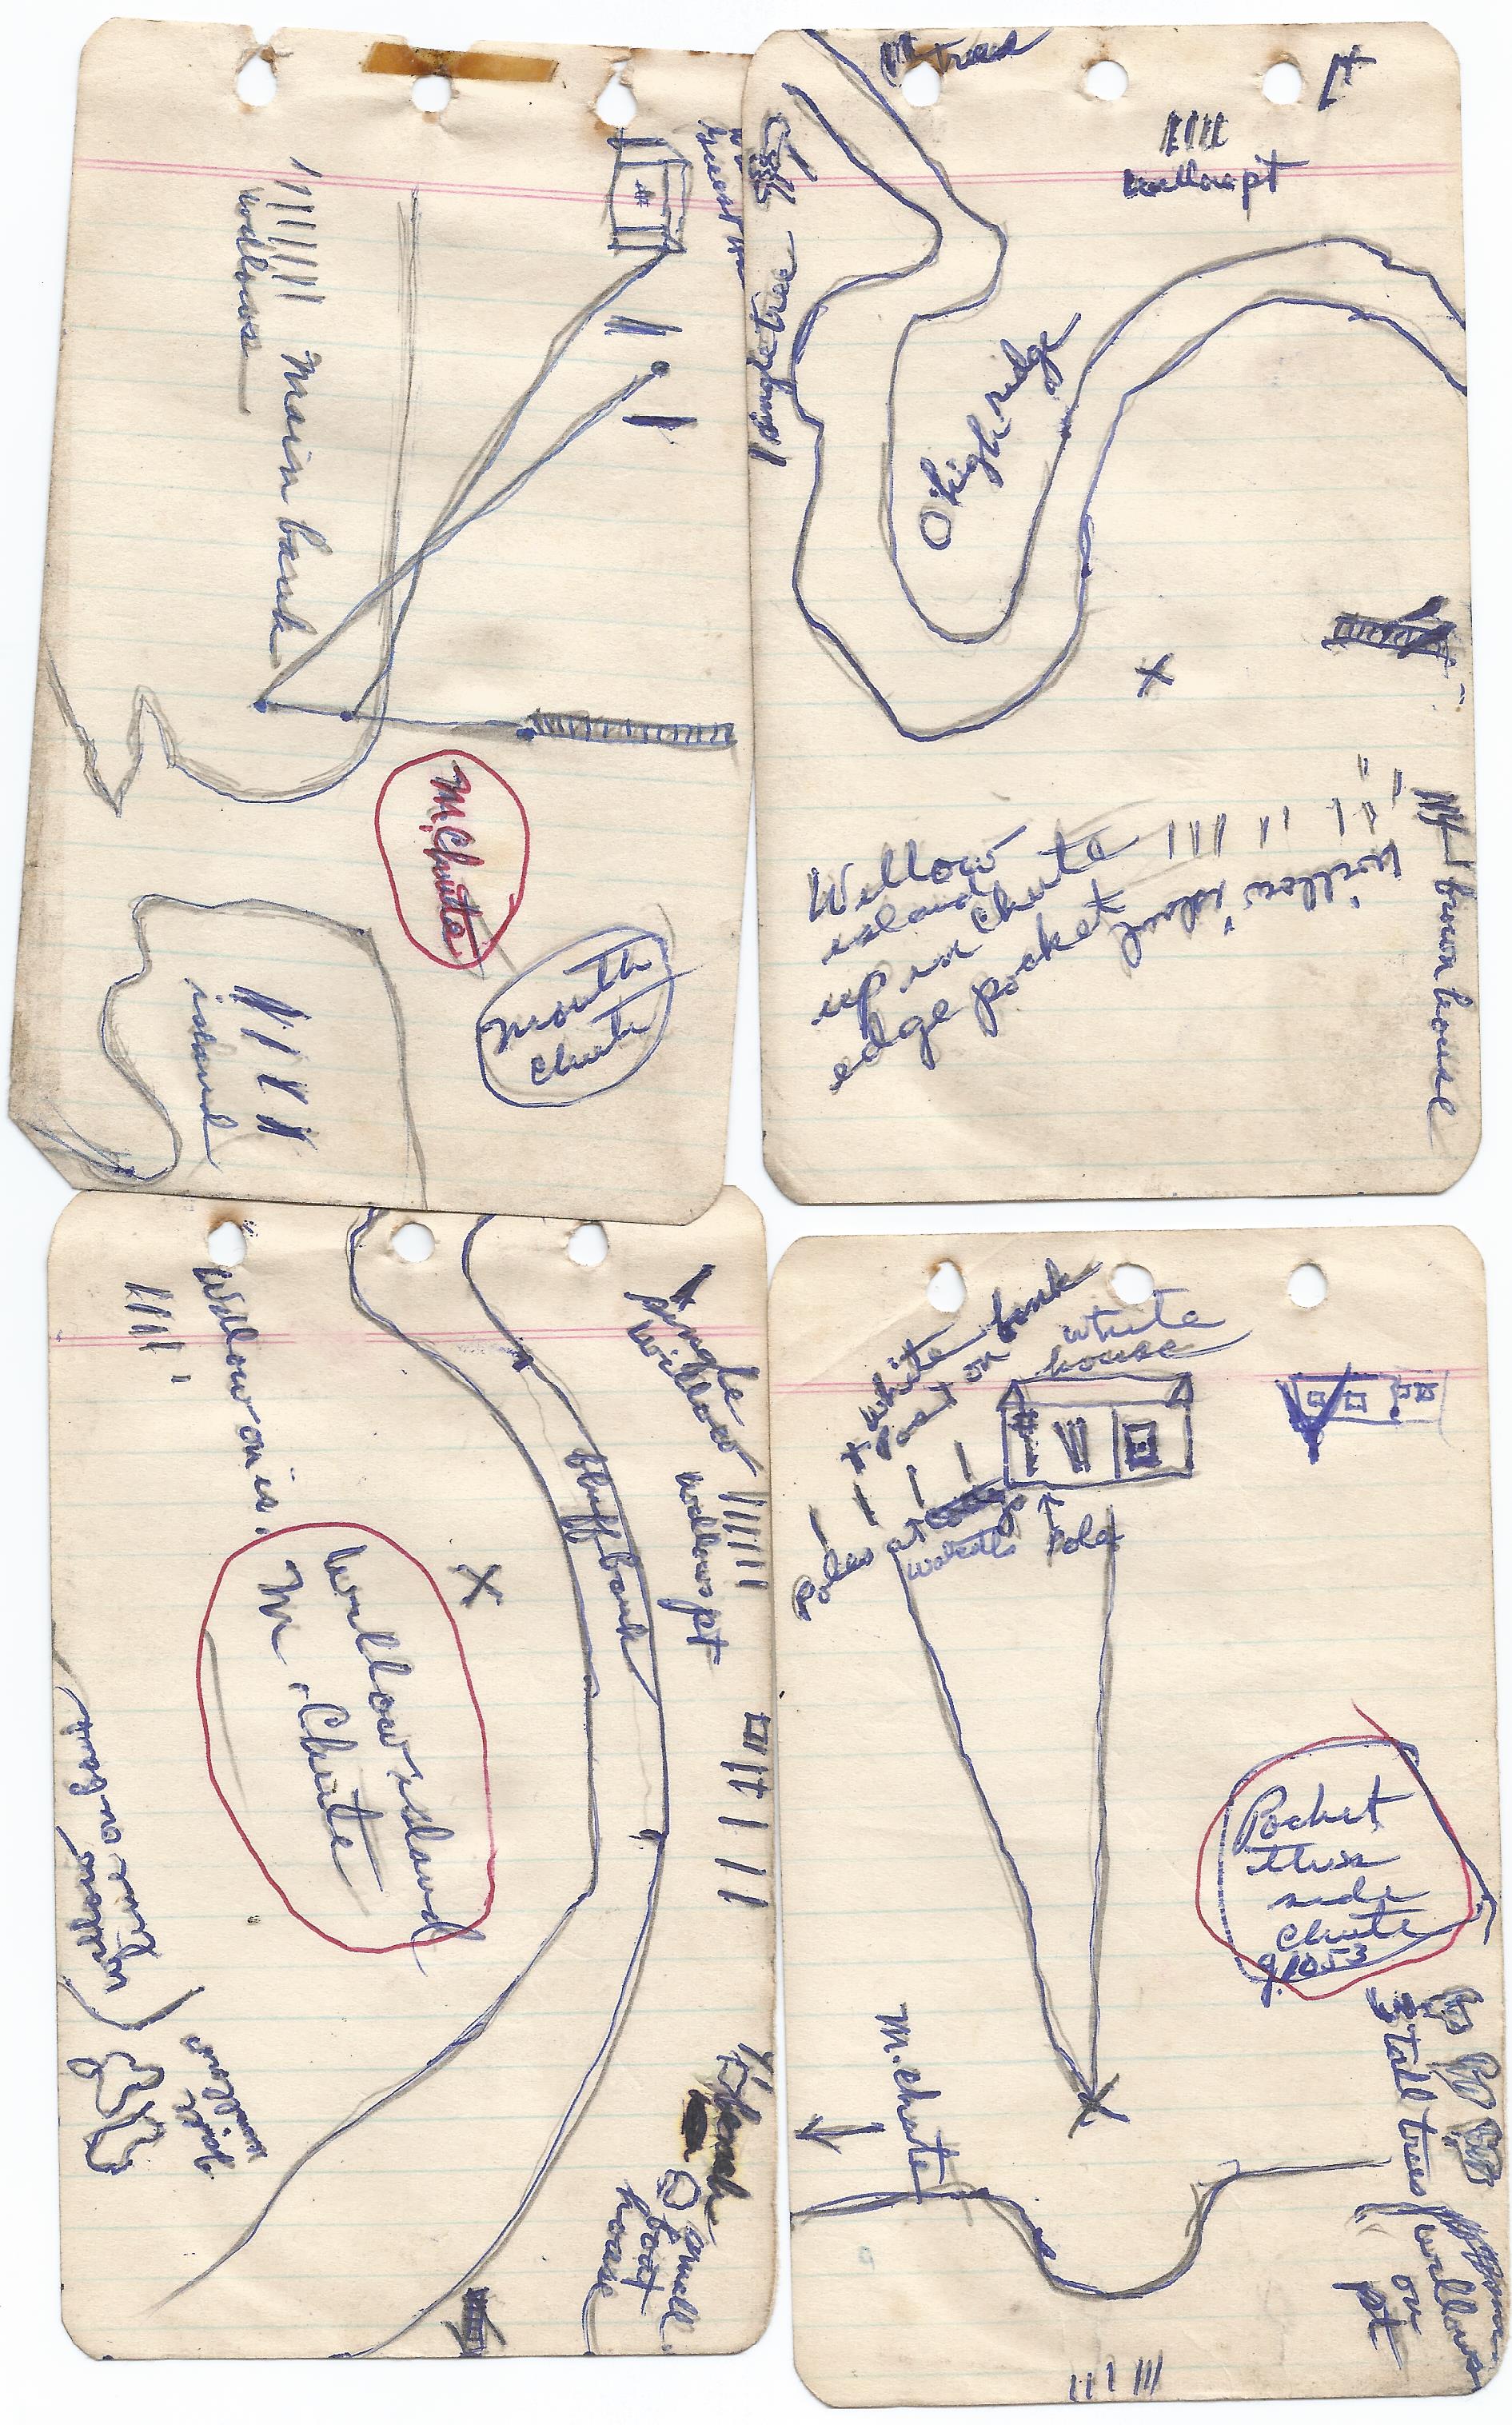 willows
Main bank
M. Chute
Mouth
chute
island
trees
willow pt
single tree
high ridge
Willow
island
up in chute
edge pocket
willow island
brown house
Willow on is.
single
willow
willows pt
bluff bank
Willow island
M. Chute
willow
line on bank
willow
isle
small
boat
house
white
post on bank
white
house
Poles at
water
Pole
Pocket
this
side
chute
M. chute
3 tall trees
willows
on
pt